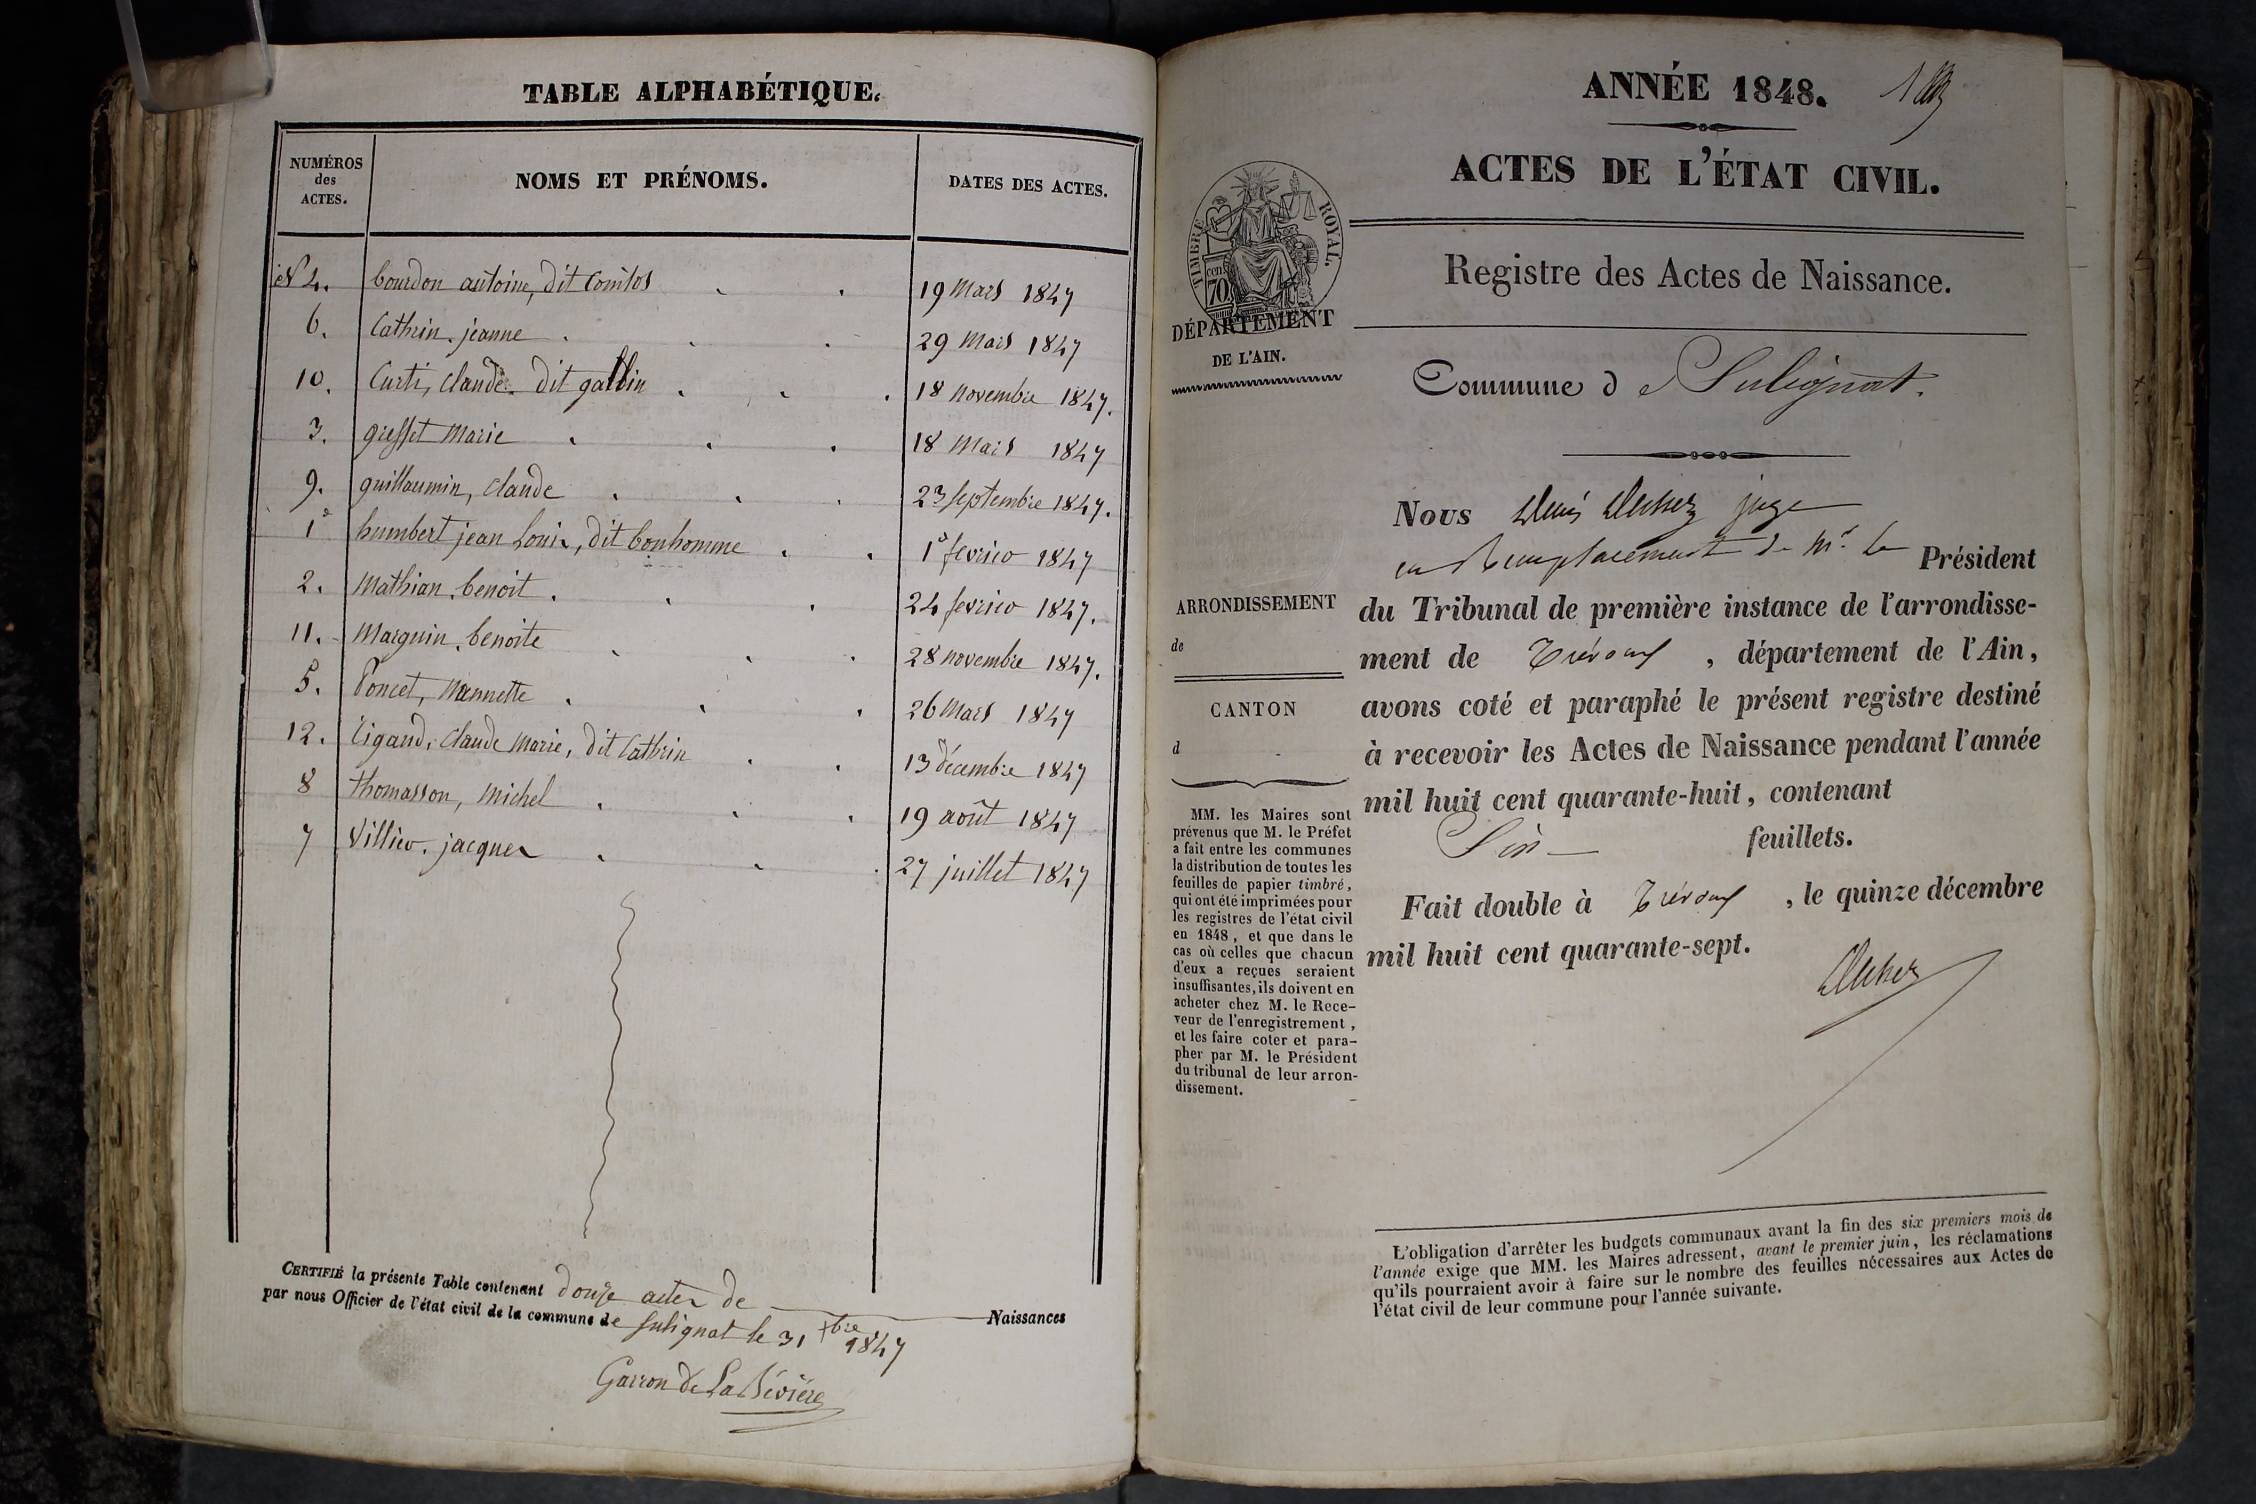 TABLE ALPHABÉTIQUE.
NUMÉROS des ACTES.
NOMS ET PRÉNOMS.
DATES DES ACTES.
N 4. bourdon antoine, dit Comtos 19 Mars 1847
6. Cathrin, jeanne 29 Mars 1847
10. Curti, claude dit galbin 18 novembre 1847.
3. greffet Marie 18 Mars 1847
9. guillaumin, claude 23 septembre 1847.
1er humbert jean Louis, dit bonhomme 1er fevrier 1847
2. Mathian, benoit 24 fevrier 1847.
11. Marguin, benoite 28 novembre 1847.
5. Poncet, Mannette 26 Mars 1847
12. Tigaud, claude Marie, dit Cathrin 13 décembre 1847
8 thomasson, Michel 19 août 1847
7 Villier, jacques 27 juillet 1847
CERTIFIÉ la présente Table contenant douze actes de Naissances
par nous Officier de l'état civil de la commune de Sulignat le 31 Xbre 1847
Garron de La Bévière
ANNÉE 1848.
ACTES DE L'ÉTAT CIVIL.
TIMBRE ROYAL.
cen. 70
DÉPARTEMENT
DE L'AIN.
Registre des Actes de Naissance.
Commune de Sulignat.
Nous Denis Ducher juge
en Remplacement de Mr. le Président
du Tribunal de première instance de l'arrondisse-
ment de Trévoux, département de l'Ain,
avons coté et paraphé le présent registre destiné
à recevoir les Actes de Naissance pendant l'année
mil huit cent quarante-huit, contenant
Six feuillets.
Fait double à Trévoux, le quinze décembre
mil huit cent quarante-sept.
Ducher
ARRONDISSEMENT
de
CANTON
d
MM. les Maires sont
prévenus que M. le Préfet
a fait entre les communes
la distribution de toutes les
feuilles de papier timbré,
qui ont été imprimées pour
les registres de l'état civil
en 1848, et que dans le
cas où celles que chacun
d'eux a reçues seraient
insuffisantes, ils doivent en
acheter chez M. le Rece-
veur de l'enregistrement,
et les faire coter et para-
pher par M. le Président
du tribunal de leur arron-
dissement.
L'obligation d'arrêter les budgets communaux avant la fin des six premiers mois de
l'année exige que MM. les Maires adressent, avant le premier juin, les réclamations
qu'ils pourraient avoir à faire sur le nombre des feuilles nécessaires aux Actes de
l'état civil de leur commune pour l'année suivante.